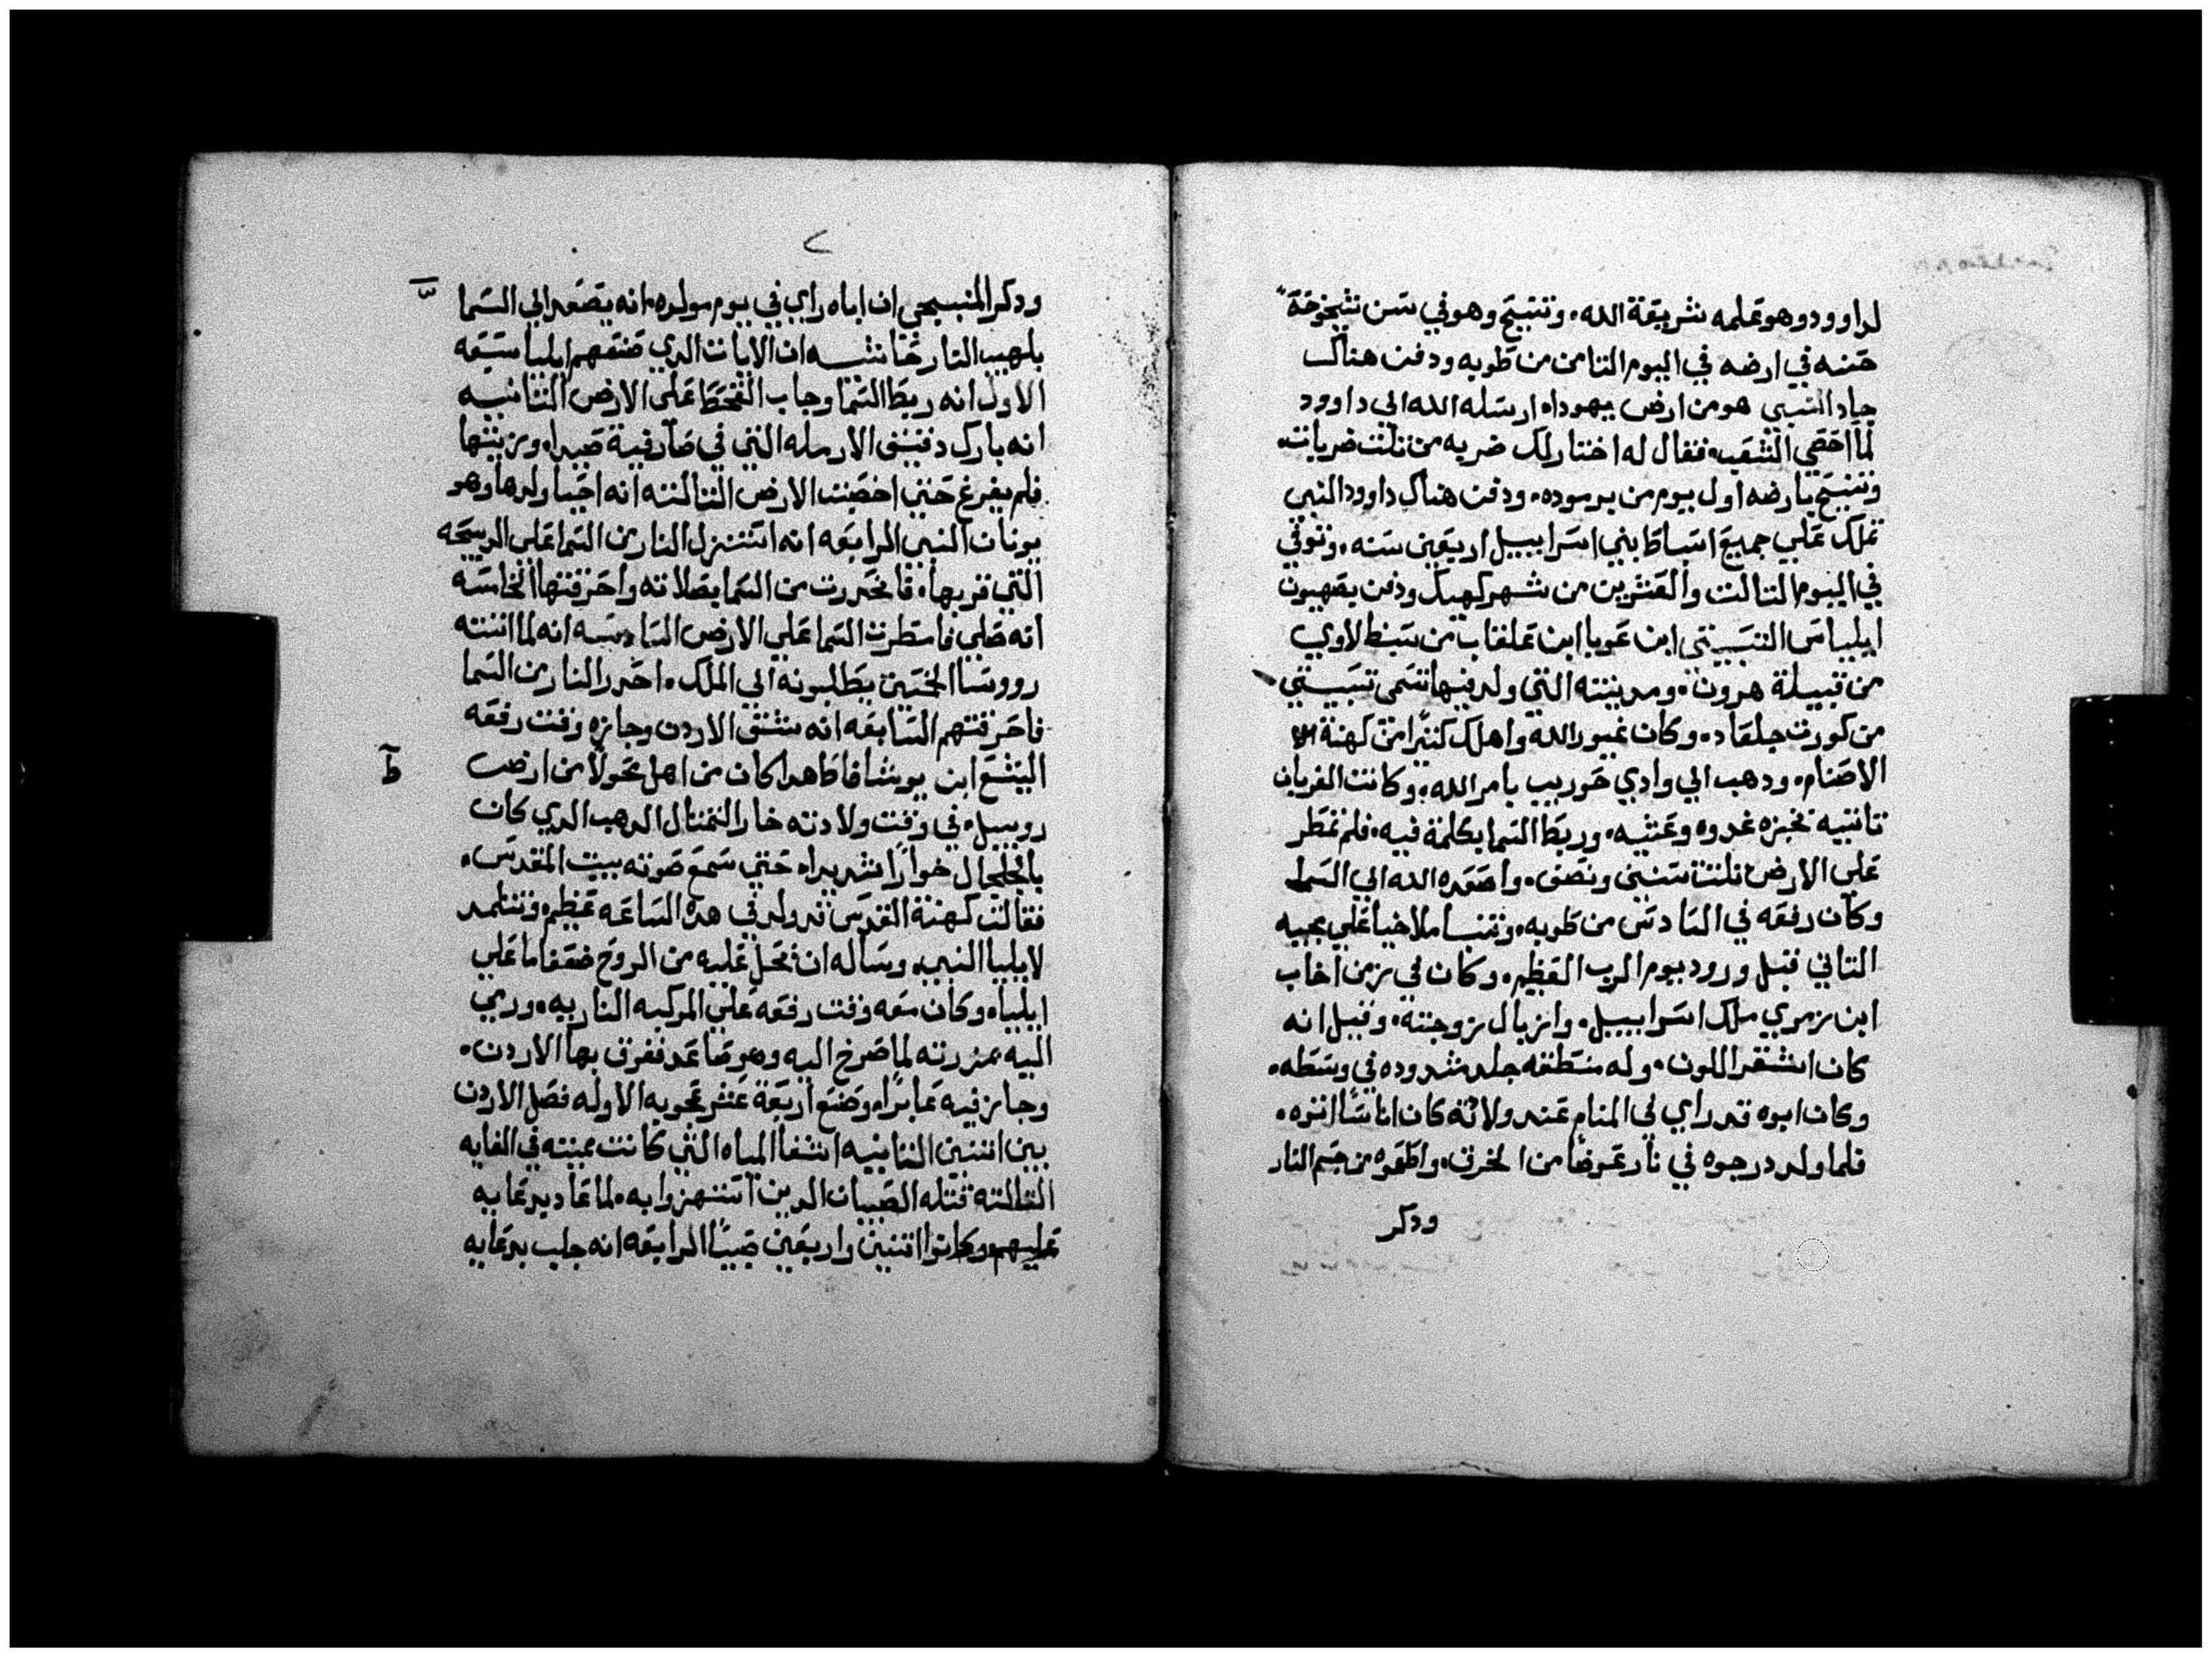 لداوود وهو يعلمه شريعة الله. وتنيح وهو في سن شيخوخة
حسنه في ارضه في اليوم التامن من طوبه ودفن هناك
جاد النبي هو من ارض يهوداه ارسله الله الي داوود
لما احصي الشعب. فقال له اختار لك ضربه من تلت ضربات.
وتنيح بارضه اول يوم من برموده. ودفن هناك داوود النبي
تملك علي جميع اسباط بني اسراييل اربعين سنه. وتوفي
في اليوم التالت والعشرين من شهر كيهك ودفن بصهيون
ايلياس التسبيتي ابن عوبا ابن علفاب من سبط لاوي
من قبيلة هرون. ومدينته التي ولد فيها تسمي تسبيتي
من كورت جلعاد. وكان غيور الله واهلك كتيرا من كهنة الا
الاصنام. ودهب الي وادي حوريب بامر الله. وكانت الغربان
تاتيه بخبزه غدوه وعشيه. وربط السما بكلمة فيه. فلم تمطر
علي الارض تلت سنين ونصف. واصعده الله الي السما
وكان رفعه في السادس من طوبه. وتنبا ملاخيا علي مجيه
التاني قبل ورود يوم الرب العظيم. وكان في زمن اخاب
ابن زمري ملك اسراييل. وايزبال زوجته. وقيل انه
كان اشقر اللون. وله منطقه جلد مشدوده في وسطه.
وكان ابوه قد راي في المنام عند ولاته كان اناسا اتوه.
فلما ولد درجوه في نار عوضا من الخرق. واطعوه من جسم النار
ودكر
ودكر المنبجي ان اباه راي في يوم مولده. انه يصعد الي السما
بلهيب النار خامسه ان الايات الدي صنعهم ايليا سبعه
الاول انه ربط السما وجاب القحط علي الارض التانيه
انه بارك دقيق الارمله التي في صارفية صيدا. وزيتها
فلم يفرغ حتي اخصبت الارض التالته انه احيا ولدها وهو
يونان النبي الرابعه انه استنزل النار من السما علي الدبيحه
التي قربها. فانحدرت من السما بصلاته واحرقتها الخامسه
انه صلي فامطرت السما علي الارض السادسه انه لما اتته
رووسا الخمسين يطلبونه الي الملك. احدر النار من السما
فاحرقتهم السابعه انه شق الاردن وجازه وقت رفعه
اليشع ابن يوشافاط هدا كان من اهل محولا من ارض
روبيل. في وقت ولادته خار التمتال الدهب الدي كان
بالجلجال خوارا شديدا. حتي سمع صوته ببيت المقدس.
فقالت كهنة القدس قد ولد في هده الساعه عظيم. وتتلمد
لايليا النبي. وساله ان تحل عليه من الروح ضعفا ما علي
ايلياه وكان معه وقت رفعه علي المركبه الناريه. ورمي
اليه بمزرته لما صرخ اليه وهو صاعد ففرق بها الاردن.
وجاز فيه عابرا. وصنع اربعة عشر عجوبه الاوله فصل الاردن
بين اتنين التانيه اشفا المياه التي كانت مميته في الغايه
التالته قتله الصبيان الدين استهزوا به. لما عاد يدعا به
عليهم وكانوا اتنين واربعين صبيا الرابعه انه جلب بدعايه